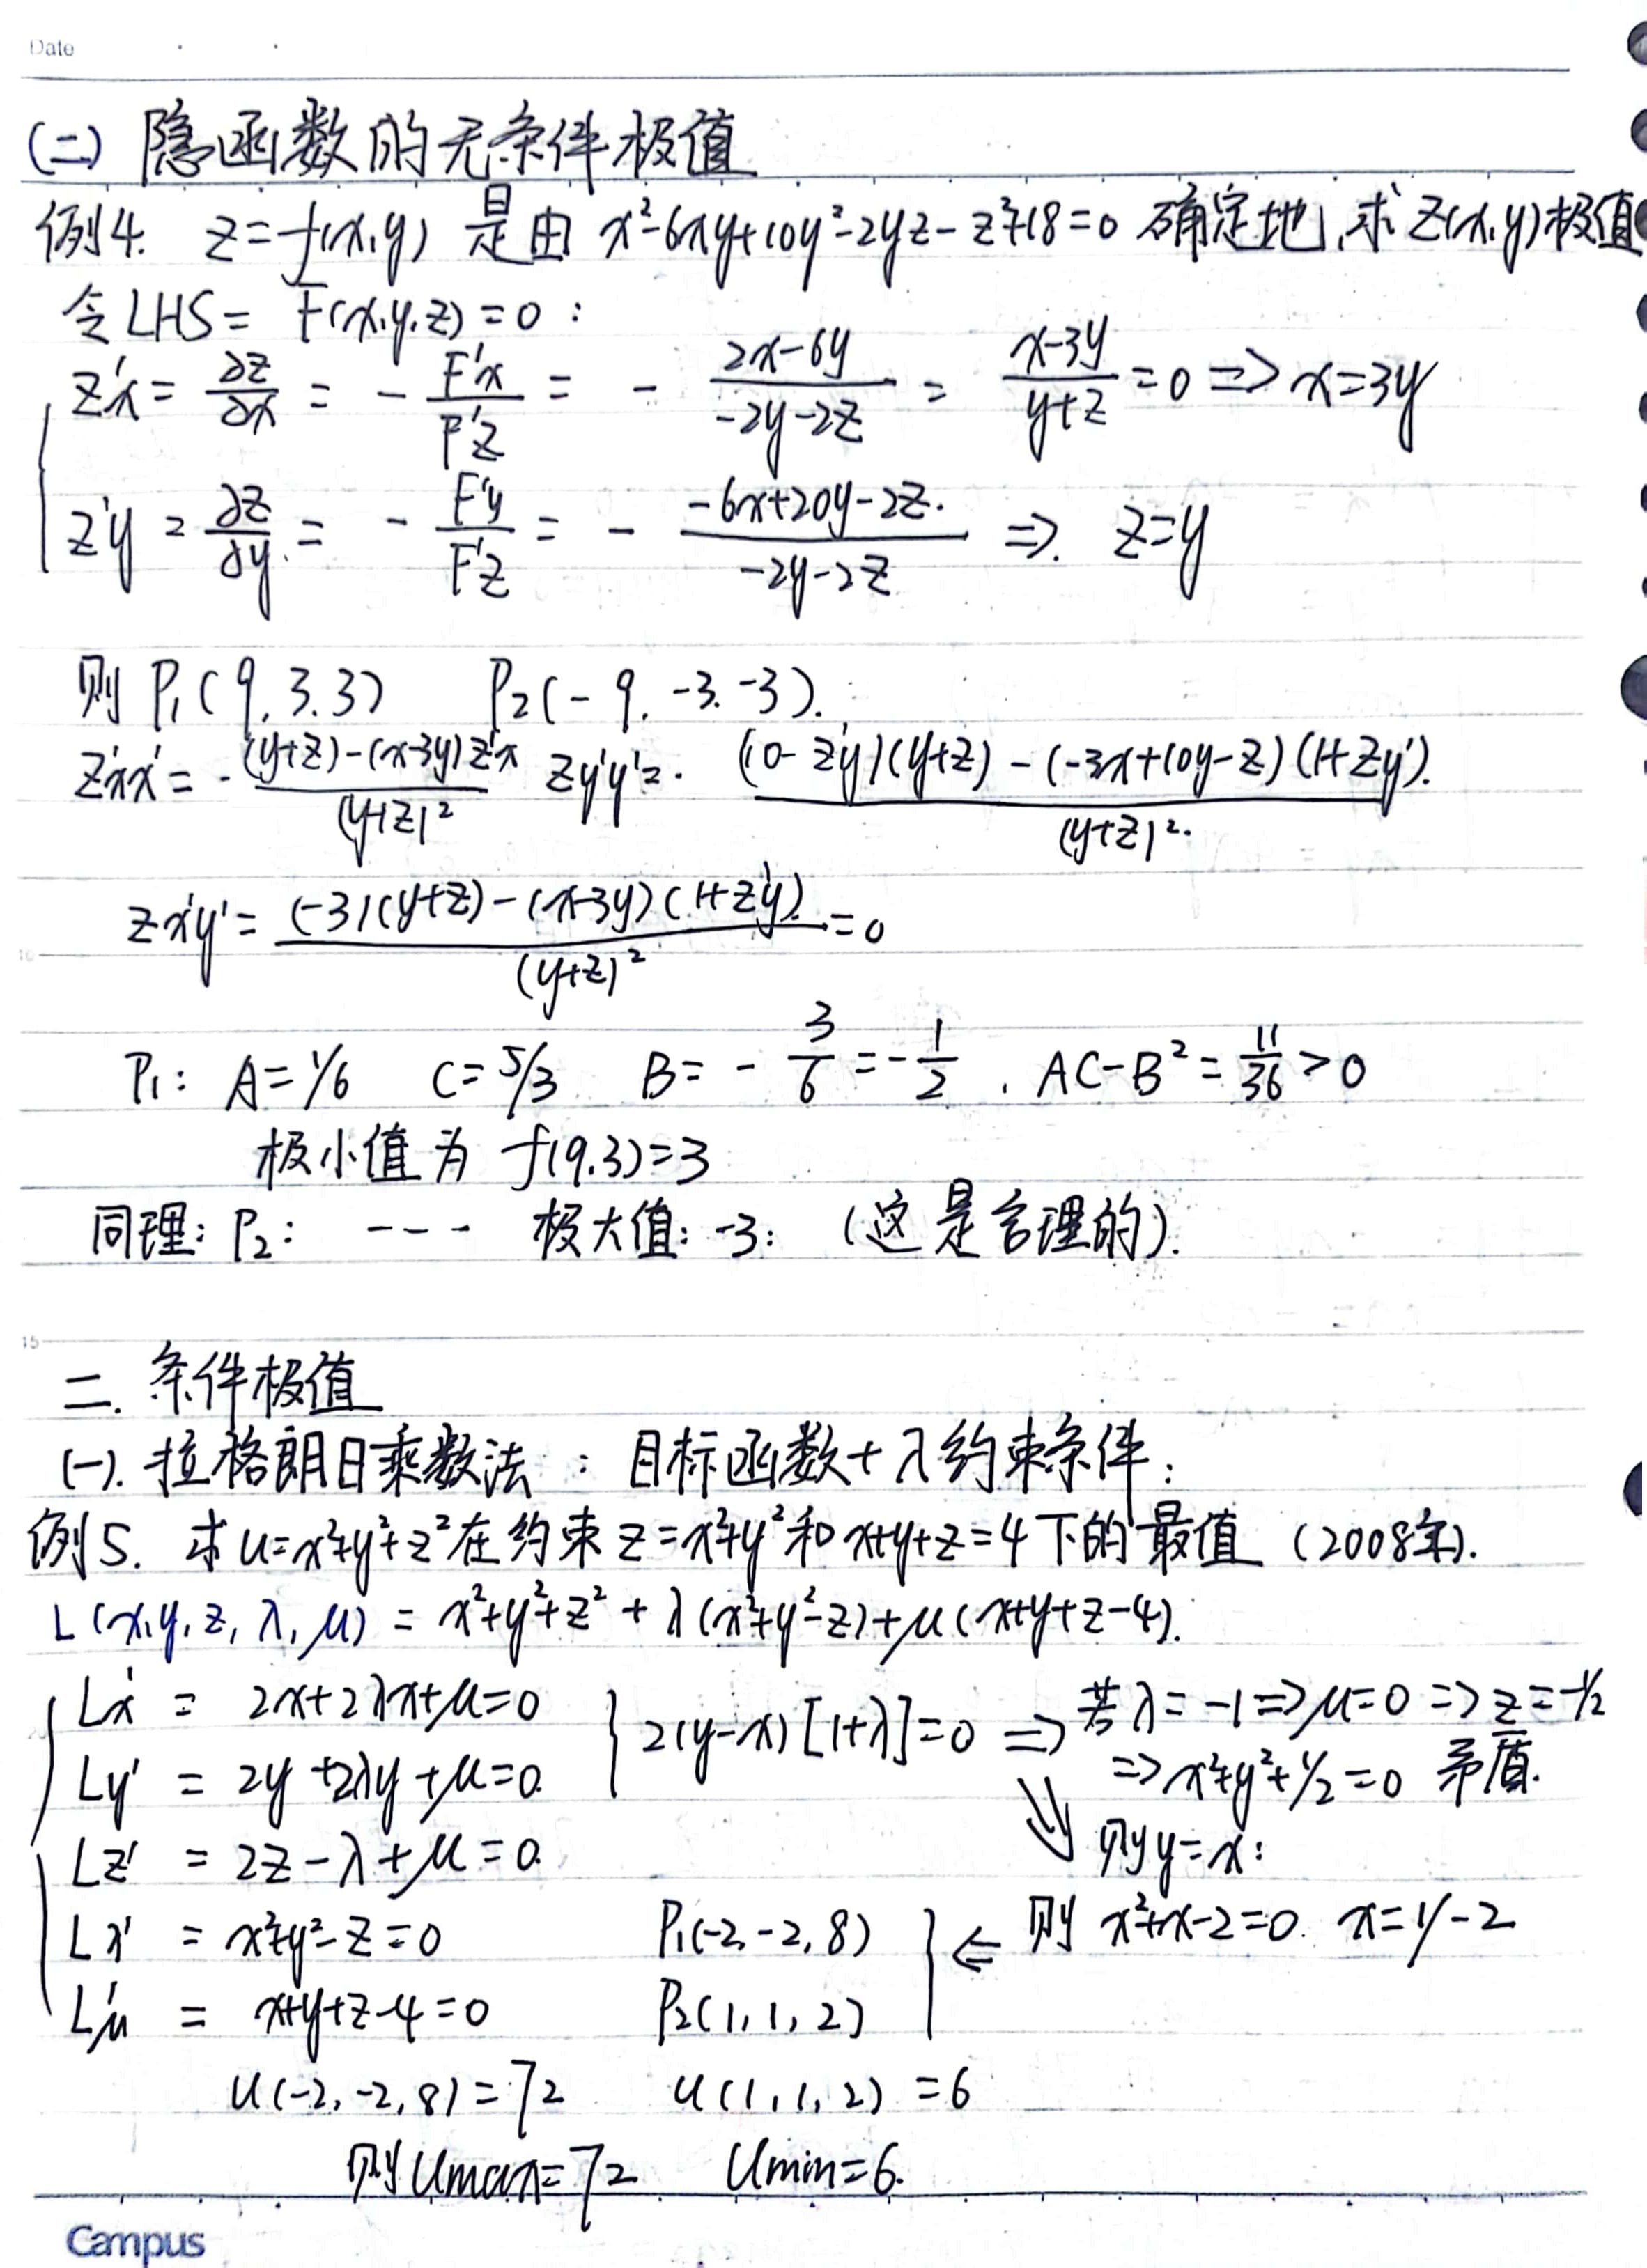 Date
(二) 隐函数的无条件极值
例4. z=f(x,y) 是由 x²-6xy+10y²-2yz-z²+18=0 确定地,求z(x,y)极值
令LHS= F(x,y,z)=0:
z'x = ∂z/∂x = - F'x/F'z = - (2x-6y)/(-2y-2z) = (x-3y)/(y+z) =0 => x=3y
z'y = ∂z/∂y = - F'y/F'z = - (-6x+20y-2z)/(-2y-2z) => z=y
则 P₁(9,3,3) P₂(-9,-3,-3).
z'xx' = -((y+z)-(x-3y)z'x)/(y+z)² zy'y'= ((10-z'y)(y+z)-(-3x+10y-z)(1+zy'))/(y+z)².
zx'y' = ((-3)(y+z)-(x-3y)(1+z'y))/(y+z)² =0
10
P₁: A=1/6 C=5/3 B= - 3/6 = - 1/2 , AC-B² = 11/36 >0
极小值为 f(9,3)=3
同理: P₂: --- 极大值: -3: (这是合理的).
15
二. 条件极值
(一). 拉格朗日乘数法: 目标函数+λ约束条件:
例5. 求u=x²+y²+z²在约束z=x²+y²和x+y+z=4下的最值 (2008年).
L(x,y,z,λ,μ) = x²+y²+z²+λ(x²+y²-z)+μ(x+y+z-4).
Lx' = 2x+2λx+μ=0 } 2(y-x)[1+λ]=0 => 若λ=-1=>μ=0 => z=-1/2
Ly' = 2y+2λy+μ=0. => x²+y²+1/2=0 矛盾.
Lz' = 2z-λ+μ=0. ⇓ 则y=x:
Lλ' = x²+y²-z=0 P₁(-2,-2,8) } <= 则 x²+x-2=0. x=1/-2
Lμ' = x+y+z-4=0 P₂(1,1,2)
u(-2,-2,8)=72 u(1,1,2)=6
则Umax=72 Umin=6.
Campus